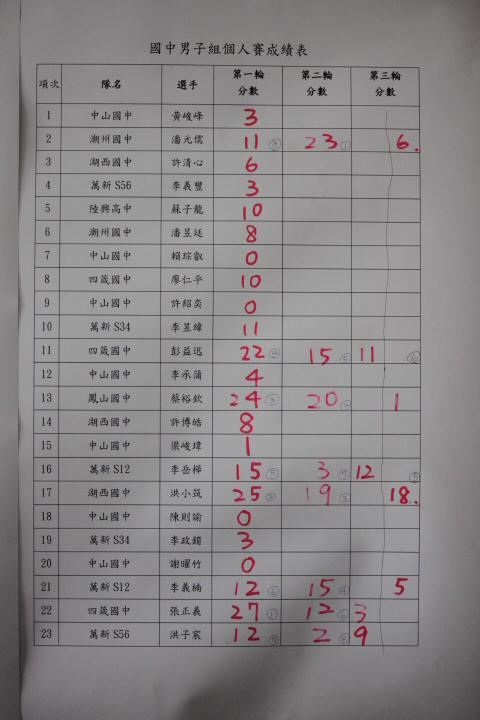 國中男子組個人賽成績表
項次 隊名 選手 第一輪分數 第二輪分數 第三輪分數
1 中山國中 黃峻峰 3
2 潮州國中 潘元儒 11 ③ 23 ① 6.
3 湖西國中 許清心 6
4 萬新 S56 李義豐 3
5 陸興高中 蘇子龍 10
6 潮州國中 潘昱廷 8
7 中山國中 賴琮叡 0
8 四箴國中 廖仁平 10
9 中山國中 許紹奕 0
10 萬新 S34 李昱緯 11
11 四箴國中 彭益迅 22 ④ 15 ⑤ 11 ⑥
12 中山國中 李承蒲 4
13 鳳山國中 蔡裕欽 24 ③ 20 ② 1
14 湖西國中 許博皓 8
15 中山國中 梁峻瑋 1
16 萬新 S12 李岳樺 15 ⑤ 3 ⑦ 12 ⑤
17 湖西國中 洪小筑 25 ② 19 ③ 18.
18 中山國中 陳則諭 0
19 萬新 S34 李政錩 3
20 中山國中 謝曜竹 0
21 萬新 S12 李義楠 12 ⑥ 15 ④ 5
22 四箴國中 張正義 27 ① 12 ⑥ 3
23 萬新 S56 洪子宸 12 ⑦ 2 ⑧ 9